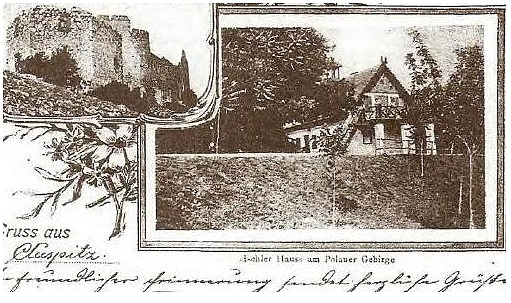 Gruss aus
Auspitz.
ischler Hauss am Polauer Gebirge
freundlicher Erinnerung sendet herzliche Grüße